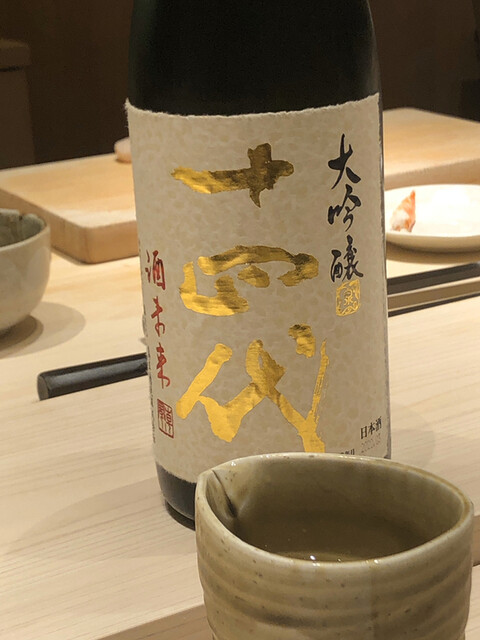 大吟醸
十四代
酒未来
日本酒